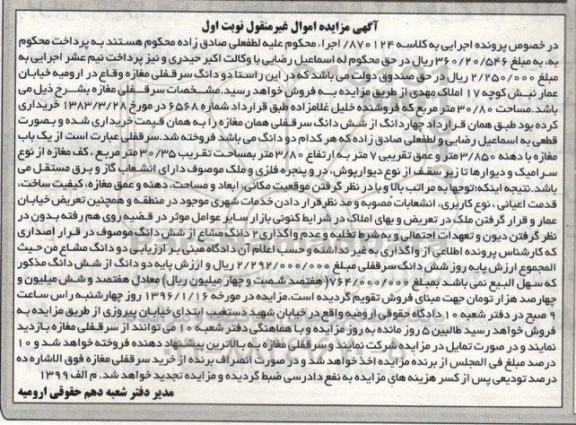 آگهی مزایده اموال غیرمنقول نوبت اول
در خصوص پرونده اجرایی به کلاسه ۸۷۰۱۲۴/ اجرا، محکوم علیه لطفعلی صادق زاده محکوم هستند به پرداخت محکوم
به، به مبلغ ۳۶۰/۲۰/۵۴۶ ریال در حق محکوم له اسماعیل رضایی با وکالت اکبر حیدری و نیز پرداخت نیم عشر اجرایی به
مبلغ ۲/۲۵۰/۰۰۰ ریال در حق صندوق دولت می باشد که در این راستا دو دانگ سرقفلی مغازه وقاع در ارومیه خیابان
عمار نبش کوچه ۱۷ املاک مهدی از طریق مزایده به فروش خواهد رسید. مشخصات سرقفلی مغازه بشرح ذیل می
باشد. مساحت ۳۰/۸۰ متر مربع که فروشنده خلیل غلامزاده طبق قرارداد شماره ۶۵۶۸ در مورخ ۱۳۸۳/۳/۲۸ خریداری
کرده بود طبق همان قرارداد چهاردانگ از شش دانگ سرقفلی همان مغازه را به همان قیمت خریداری شده و بصورت
قطعی به اسماعیل رضایی و لطفعلی صادق زاده که هر کدام دو دانگ می باشد فروخته شد. سرقفلی عبارت است از یک باب
مغازه با دهنه ۳/۸۵۰ متر و عمق تقریبی ۷ متر به ارتفاع ۳/۸۰ متر بمساحت تقریب ۳۰/۳۵ متر مربع، کف مغازه از نوع
سرامیک و دیوارها تا زیر سقف از نوع دیوارپوش، در و پنجره فلزی و ملک موصوف دارای انشعاب گاز و برق مستقل می
باشد. نتیجه اینکه: توجها به مراتب بالا و با در نظر گرفتن موقعیت مکانی، ابعاد و مساحت، دهنه و عمق مغازه، کیفیت ساخت،
قدمت اعیانی، نوع کاربری، انشعابات مصوبه و مد نظر قرار دادن خدمات شهری موجود در منطقه و همچنین تعریض خیابان
عمار و قرار گرفتن ملک در تعریض و بهای املاک در شرایط کنونی بازار سایر عوامل موثر در قضیه روی هم رفته بدون در
نظر گرفتن دیون و تعهدات احتمالی و به شرط تخلیه و عدم واگذاری ۲ دانگ مشاع از شش دانگ موصوف در قرار اصداری
که کارشناس پرونده اطلاعی از واگذاری به غیر نداشته و حسب اعلام آن دادگاه مبنی بر ارزیابی دو دانگ مشاع من حیث
المجموع ارزش پایه روز شش دانگ سرقفلی مبلغ ۲/۲۹۲/۰۰۰/۰۰۰ ریال و ارزش پایه دو دانگ از شش دانگ مذکور
که سهل البیع نمی باشد بمبلغ ۷۶۴/۰۰۰/۰۰۰ (هفتصد شصت و چهار میلیون ریال) معادل هفتصد و شش میلیون و
چهارصد هزار تومان جهت مبنای فروش تقویم گردیده است. مزایده در مورخه ۱۳۹۶/۱/۱۶ روز چهارشنبه راس ساعت
۹ صبح در دفتر شعبه ۱۰ دادگاه حقوقی ارومیه واقع در خیابان شهید دستغیب ابتدای خیابان پیروزی از طریق مزایده به
فروش خواهد رسید طالبین ۵ روز مانده به روز مزایده و با هماهنگی دفتر شعبه ۱۰ می توانند از سرقفلی مغازه بازدید
نمایند و در صورت تمایل در مزایده شرکت نمایند و سرقفلی مغازه به بالاترین پیشنهاد دهنده فروخته خواهد شد و ۱۰
درصد مبلغ فی المجلس از برنده مزایده اخذ خواهد شد و در صورت انصراف برنده از خرید سرقفلی مغازه فوق الاشاره ده
درصد تودیعی پس از کسر هزینه های مزایده به نفع دادرسی ضبط گردیده و مزایده تجدید خواهد شد. م الف ۱۳۹۹
مدیر دفتر شعبه دهم حقوقی ارومیه